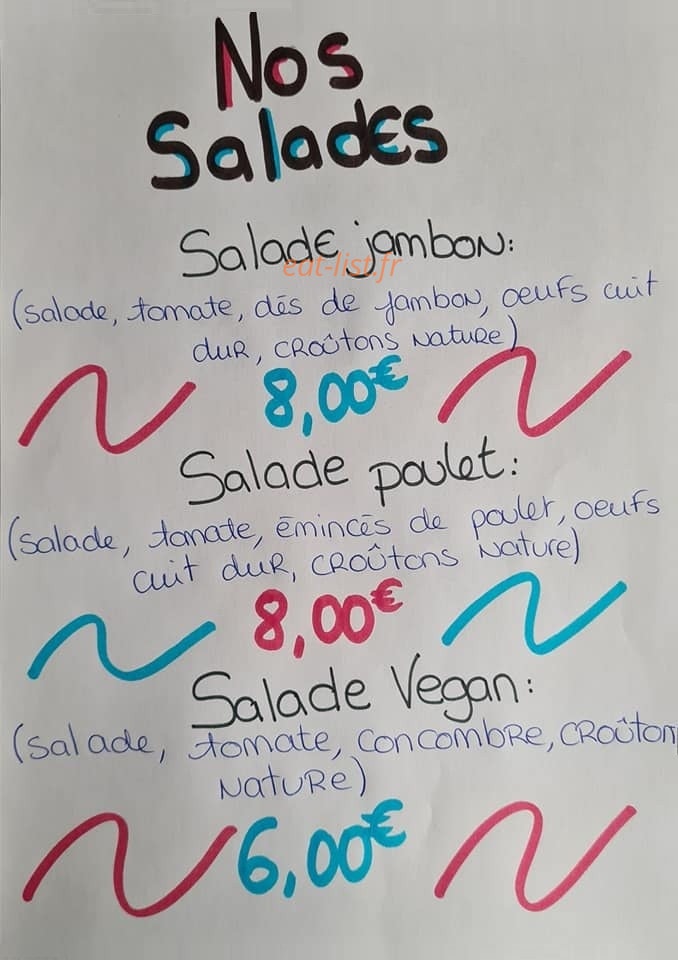 Nos
Salades
Salade jambon:
eat-list.fr
(salade, tomate, dés de jambon, oeufs cuit
dur, croûtons nature)
8,00€
Salade poulet:
(salade, tomate, émincés de poulet, oeufs
cuit dur, croûtons nature)
8,00€
Salade Vegan:
(salade, tomate, concombre, croûton
nature)
6,00€